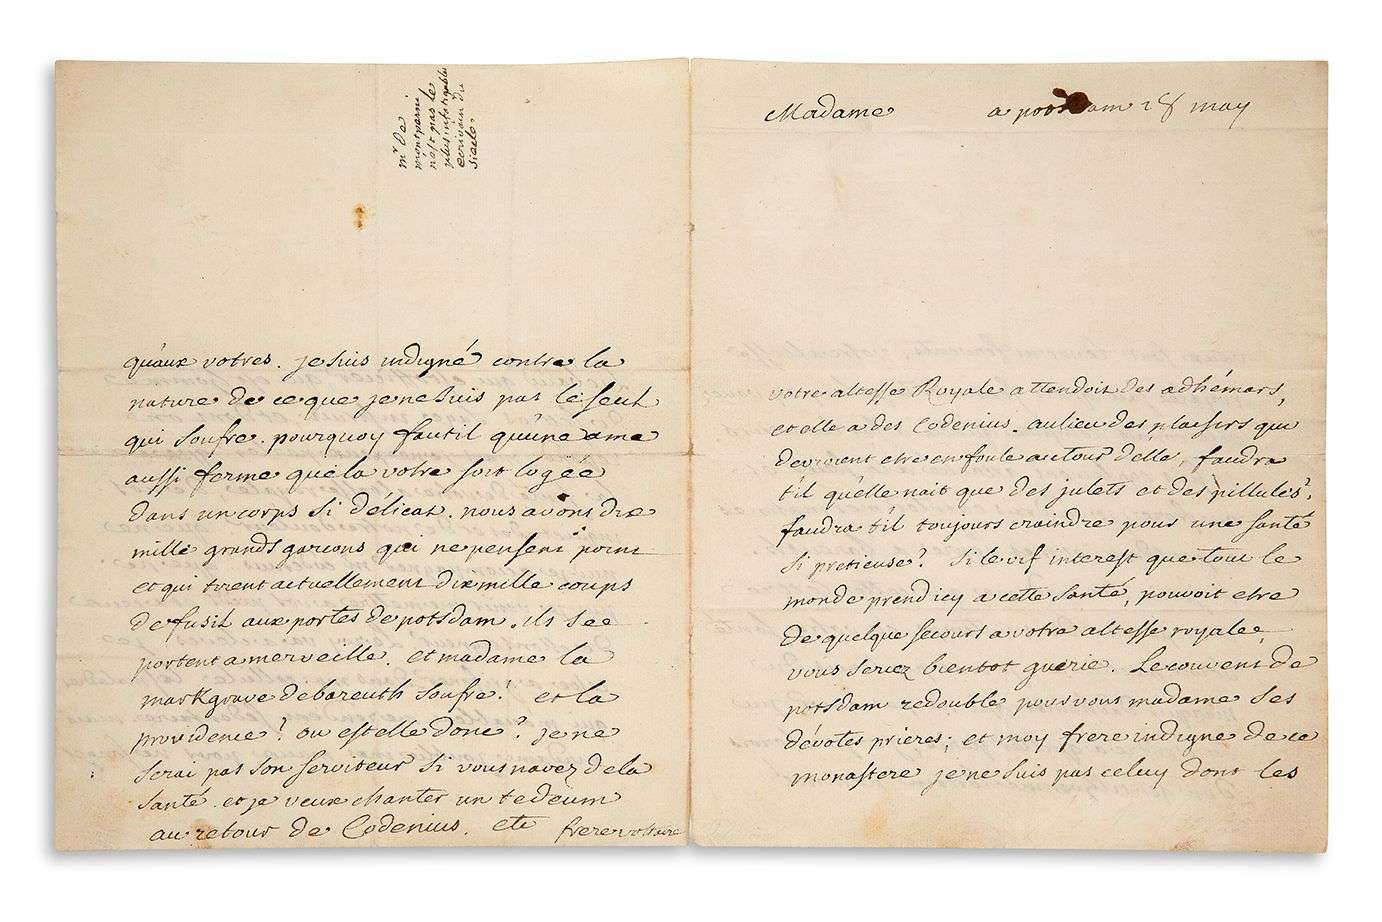 Madame a potsdam 28 may
votre altesse Royale attendoit des adhémars,
et elle a des Codenius. aulieu des plaisirs qui
devroient etre en foule autour d'elle, faudra
t'il qu'elle n'ait que des julets et des pillules?,
faudra t'il toujours craindre pour une santé
si pretieuse? si le vif interest que tout le
monde prend icy a cette santé, pouvoit etre
de quelque secours a votre altesse royale,
vous seriez bientot guerie. Le couvent de
potsdam redouble pour vous madame ses
dévotes prieres; et moy frere indigne de ce
monastere je ne suis pas celuy dont les
quaux votres. je suis indigné contre la
nature de ce que je ne suis pas le seul
qui soufre. pourquoy fautil qu'une ame
aussi ferme que la votre soit logée
dans un corps si délicat. nous avons dix
mille grands garcons qui ne pensent point
et qui tirent actuellement dix mille coups
de fusil aux portes de potsdam. ils see
portent a merveille. et madame la
markgrave de bareuth soufre! et la
providence? ou est elle donc? je ne
serai pas son serviteur si vous navez de la
santé. et je veux chanter un tedeum
au retour de Codenius. etc frere voltaire
mr de
montperni
nest pas le
plus infatigable
ecrivain du
siecle